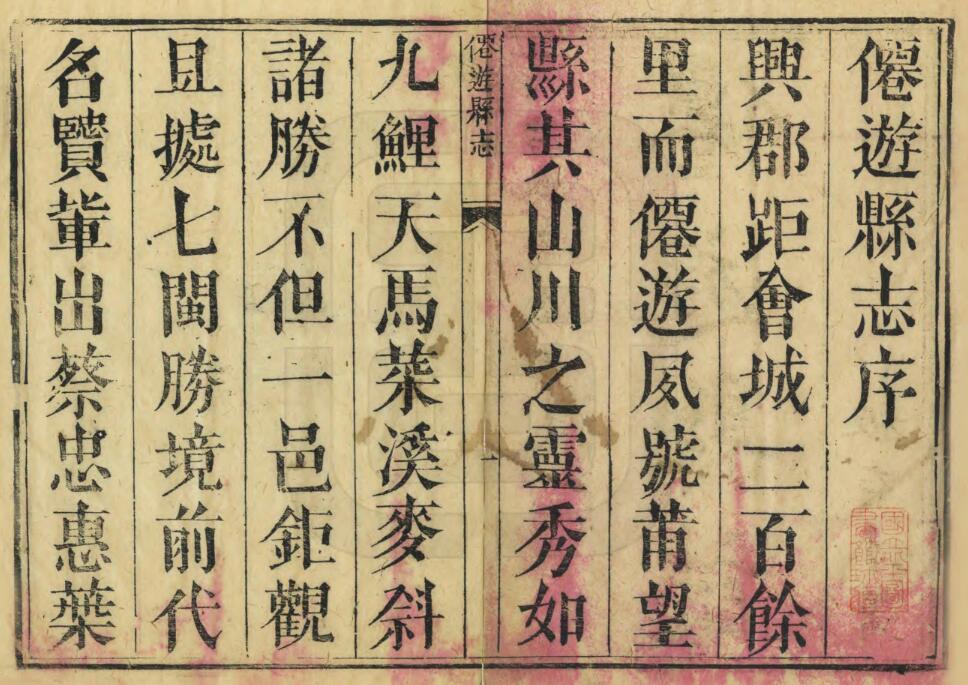 僊遊縣志序
興郡距會城二百餘
里而僊遊夙號莆望
縣其山川之靈秀如
僊遊縣志
一
九鯉天馬菜溪麥斜
諸勝不但一邑鉅觀
且據七閩勝境前代
名賢輩出蔡忠惠葉